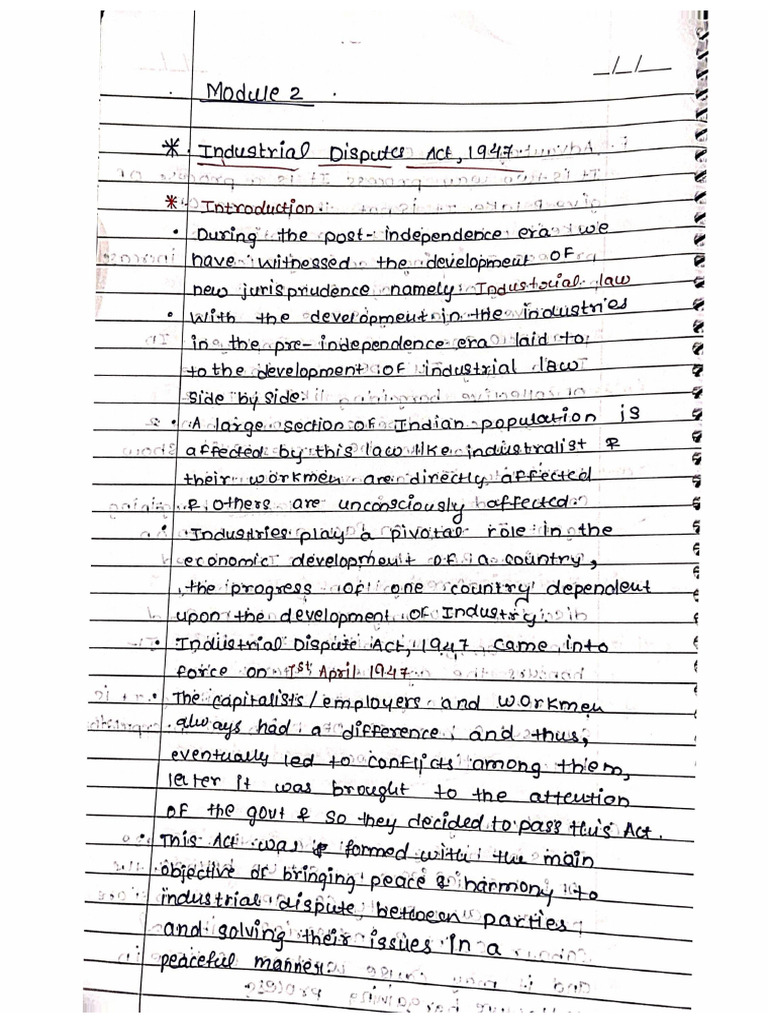 _/_/__
Module 2
* Industrial Dispute Act, 1947
* Introduction.
• During the post-independence era we
have witnessed the development of
new jurisprudence namely Industorial law
• with the development in the industries
in the pre-independence era laid to
to the development of industrial law
side by side.
• A large section of Indian population is
affected by this law like industralist &
their workmen are directly affected
& others are unconsciously affected
• Industries play a pivotal role in the
economic development of a country,
the progress of one country dependent
upon the development of Industry.
• Industrial Dispute Act, 1947 came into
force on 1st April 1947
• The capitalists/employers and workmen
always had a difference, and thus,
eventually led to conflicts among them,
later it was brought to the attention
of the govt & so they decided to pass this Act.
• This Act was formed with the main
objective of bringing peace & harmony to
industrial dispute between parties
and solving their issues in a
peaceful manner